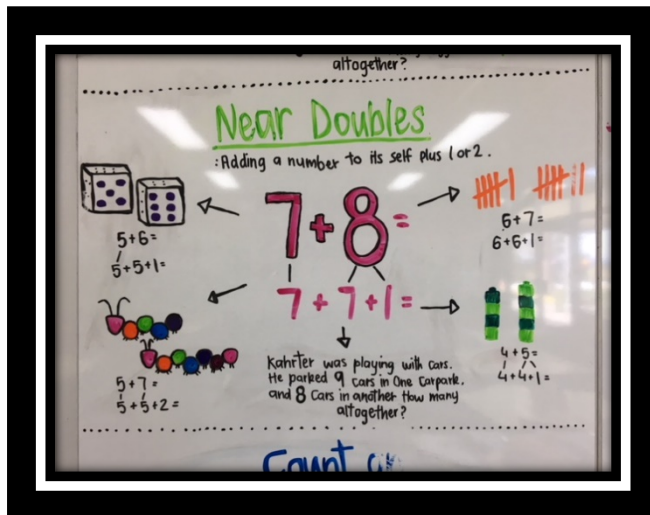 altogether?
Near Doubles
:Adding a number to its self plus 1 or 2.
7+8=
7+7+1=
5+6=
5+5+1=
6+7=
6+6+1=
5+7=
5+5+2=
4+5=
4+4+1=
Kahrter was playing with cars.
He parked 9 cars in One Carpark.
and 8 Cars in another How many
altogether?
Count